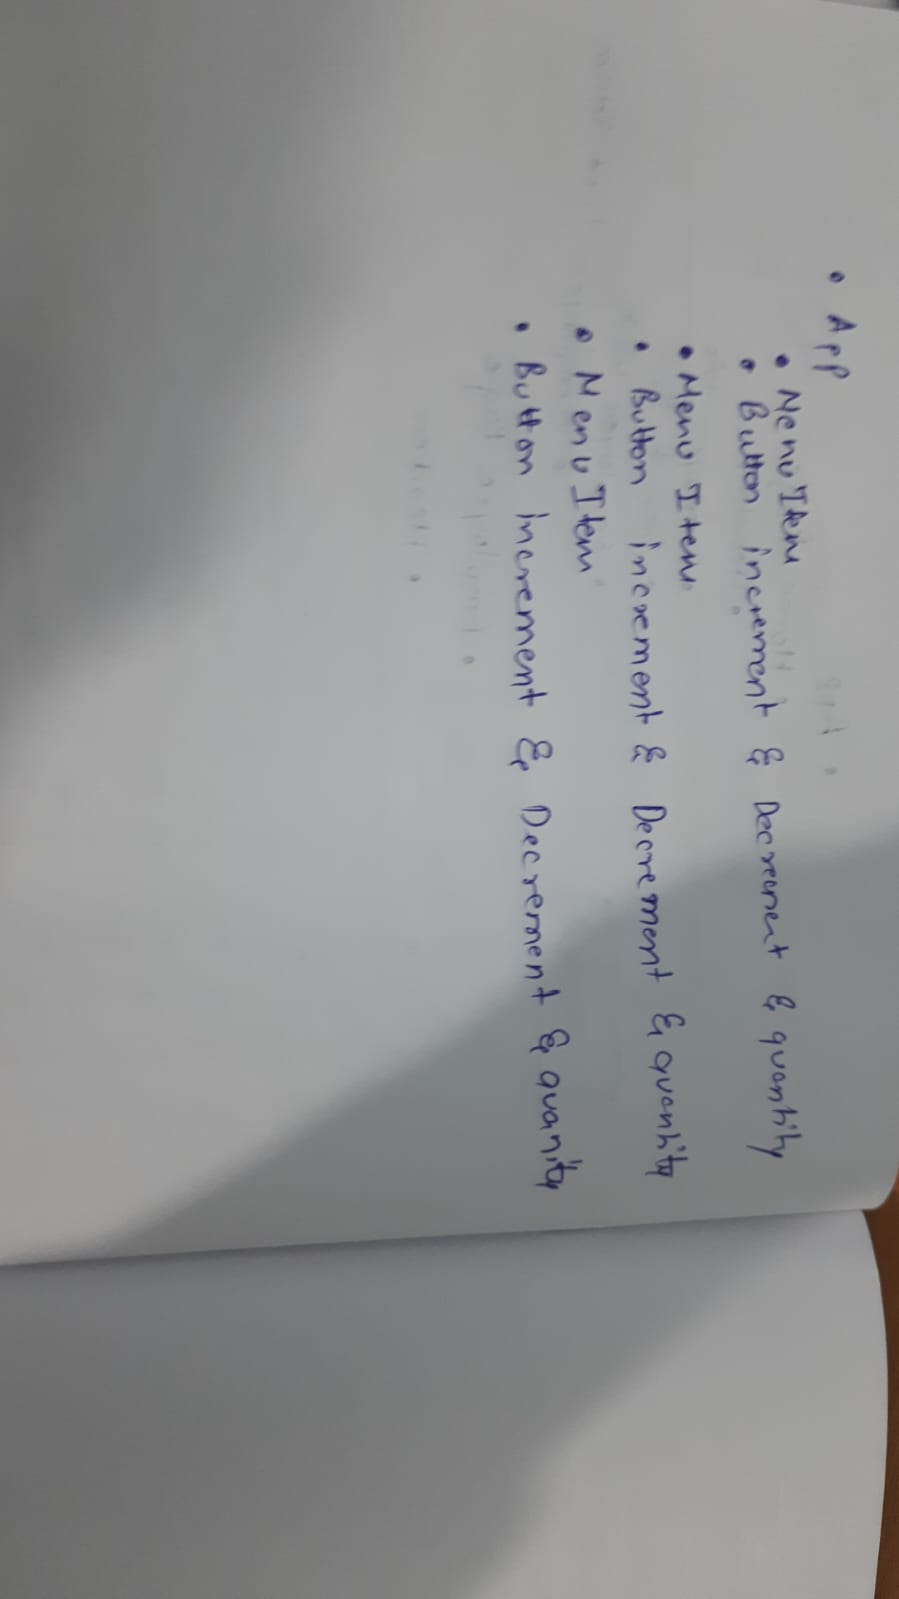 • App
• Menu Item
• Button increment & Decrement & quantity
• Menu Item
• Button increment & Decrement & quantity
• Menu Item
• Button increment & Decrement & quanity